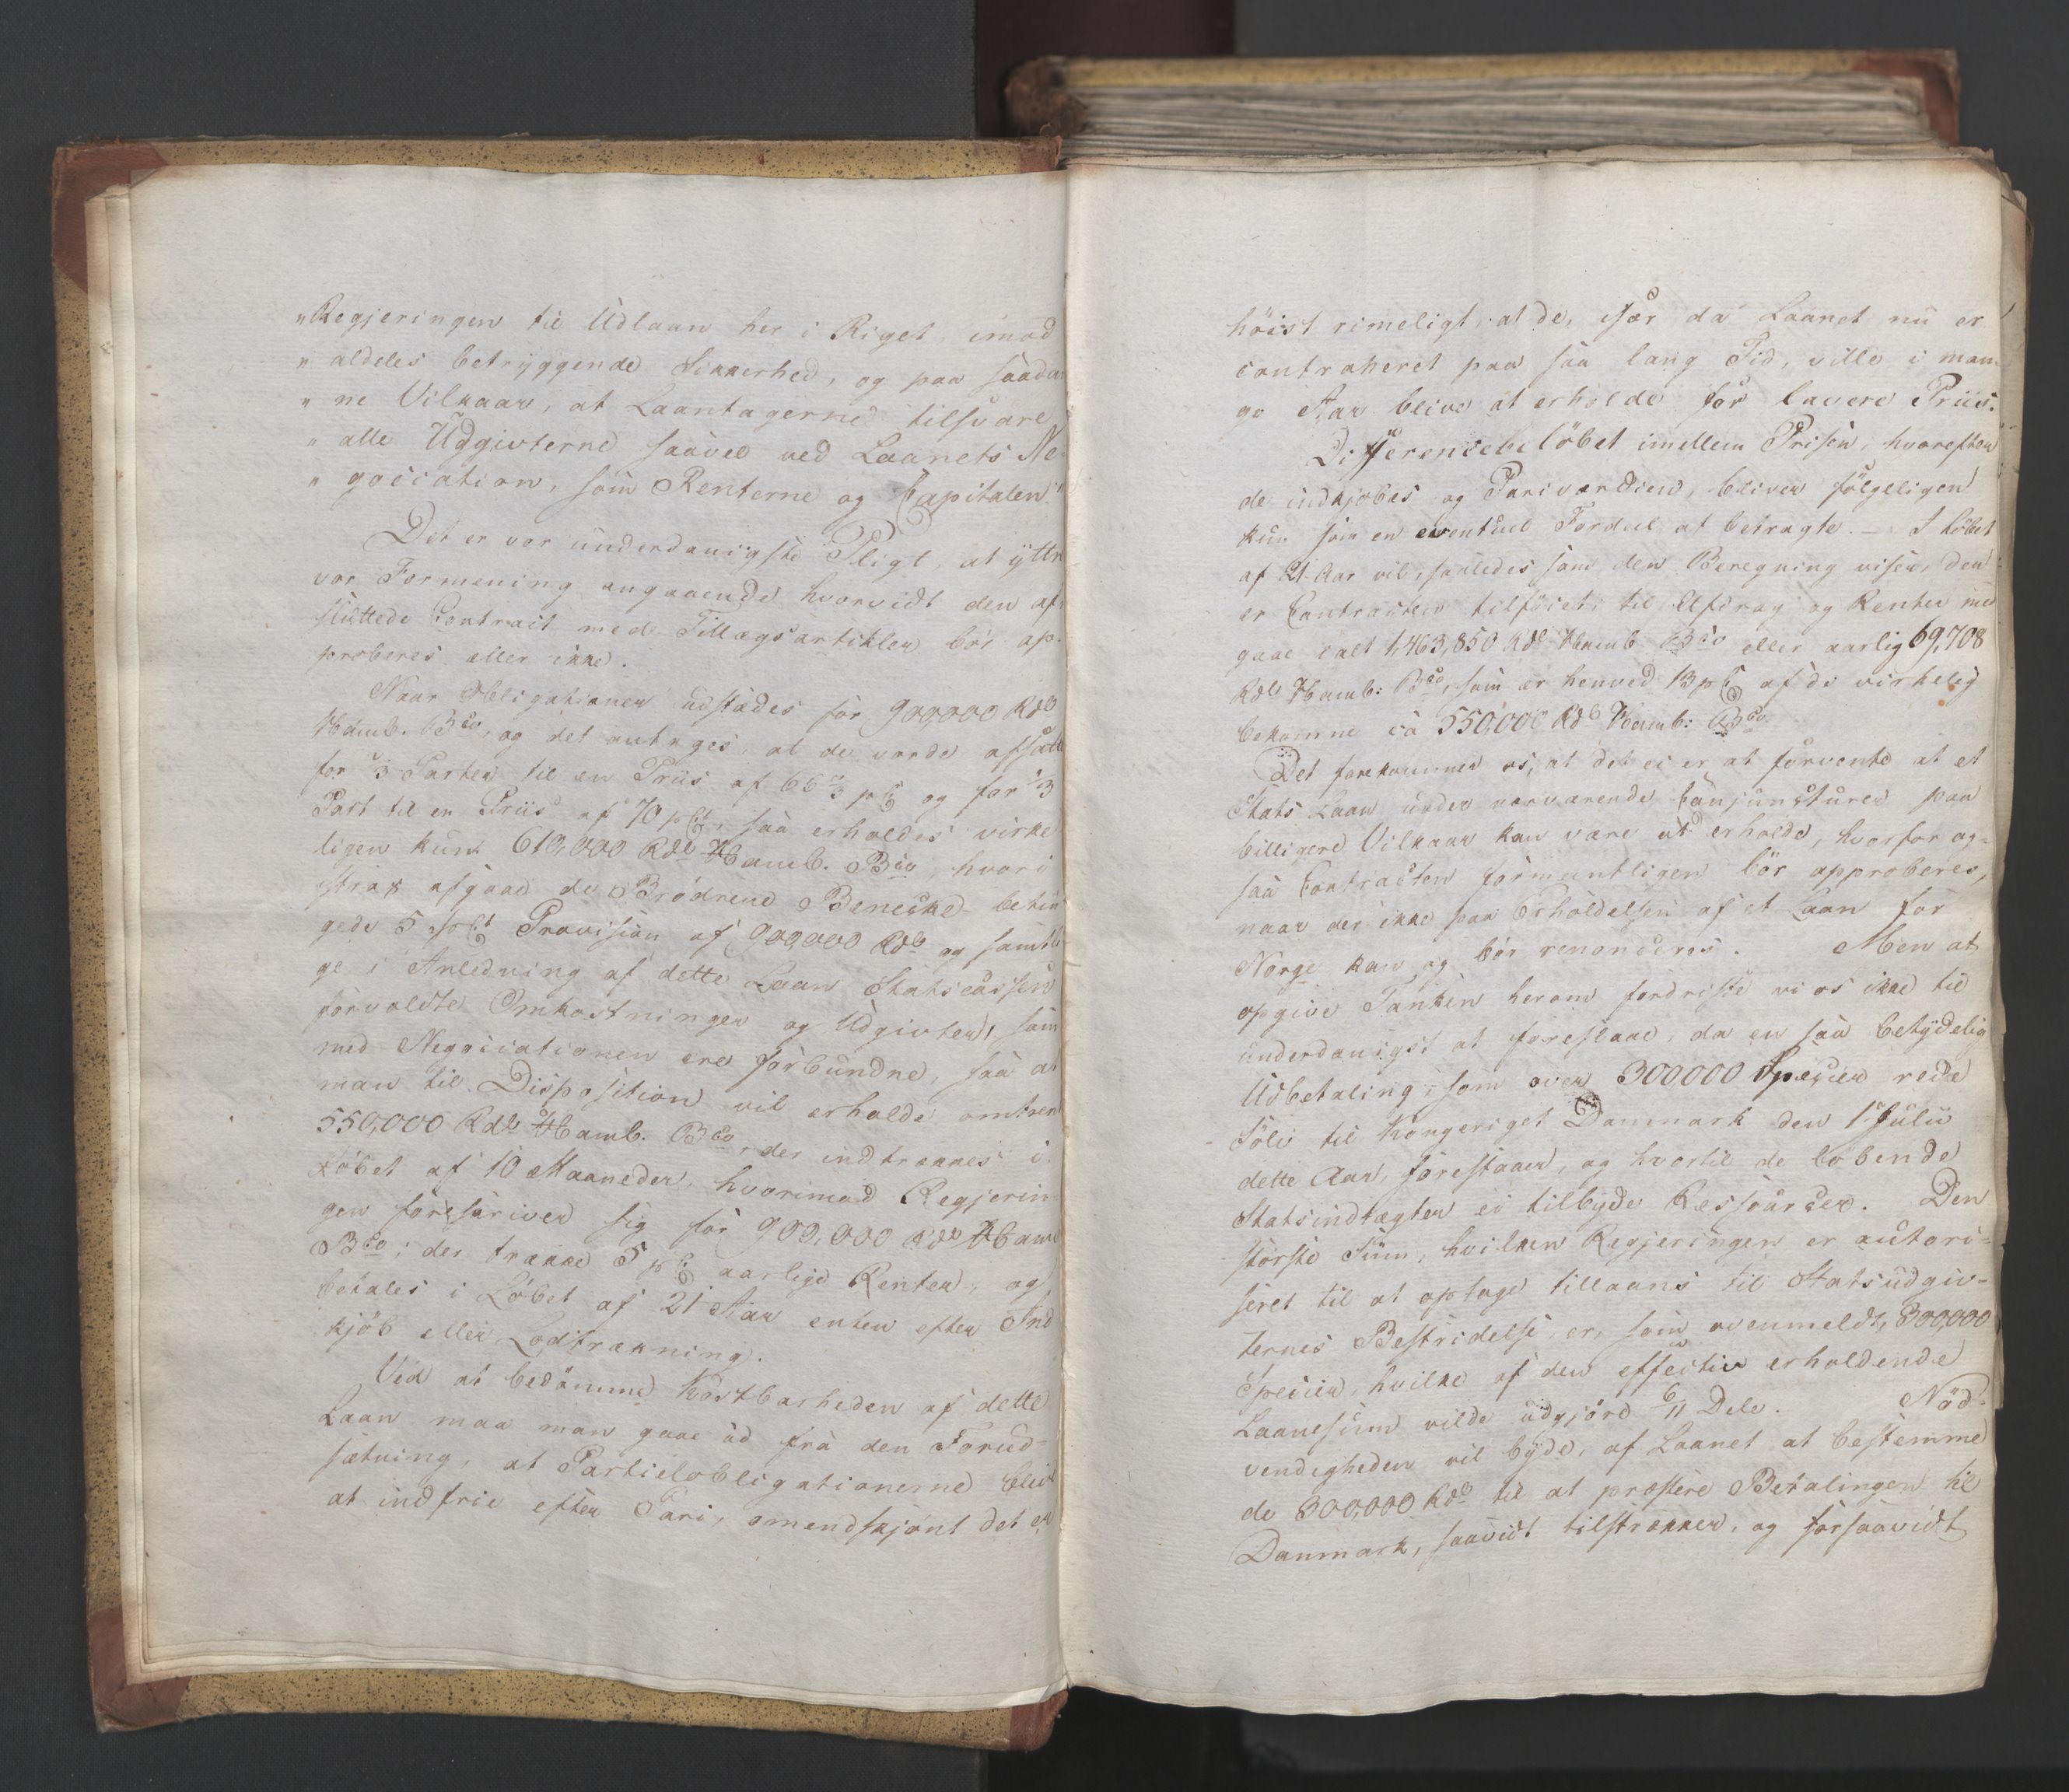 "Regjeringen til Udlaan her i Riget, imod
" aldeles betryggende Sikkerhed, og paa saada-
" ne Vilkaar, at Laantagerne tilsvare
" alle Udgivterne saavel ved Laanets Ne-
" gociation, som Renterne og Capitalen."
Det er vor underdanigste Pligt, at yttre
vor Formening angaaende hvorvidt den af-
sluttede Contract med Tillægsartikler bør ap-
proberes eller ikke.
Naar Obligationer udstædes for 900,000 Rdlr
Hamb. Bco, og det antages, at de vorde afsatte
for 2/3 Parter til en Priis af 66 2/3 pCt og for 1/3
Part til en Priis af 70 pCt, saa erholdes virke-
ligen kun 610,000 Rdlr Hamb. Bco, hvori
strax afgaae de Brødrene Benecke betin-
gede 5 pCt Provision af 900,000 Rdlr og samtli-
ge i Anledning af dette Laan Statscassen
forvoldte Omkostninger og Udgivter, som
med Negociationen ere forbundne, saa at
man til Disposition vil erholde omtrent
550,000 Rdlr Hamb. Bco, der indtrækkes i
Løbet af 10 Maaneder, hvorimod Regjerin-
gen forskriver sig for 900,000 Rdlr Hamb
Bco; der trække 5 pCt aarlige Renter, og
betales i Løbet af 21 Aar enten efter Ind
kjøb eller Lodtrækning.
Ved at bedømme Kostbarheden af dette
Laan maa man gaae ud fra den Forud-
sætning, at Partielobligationerne blive
at indfrie efter Pari, omendskjønt det er
høist rimeligt, at de, især da Laanet nu er
contraheret paa saa lang Tid, ville i man-
ge Aar blive at erholde for lavere Priis.
Differencebeløbet imellem Prisen, hvorefter
de indkjøbes og Pariværdien, bliver følgeligen
kun som en eventuel Fordeel at betragte. – I Løbet
af 21 Aar vil, saaledes som den Beregning viser, der
er Contracten tilføiet, til Afdrag og Renter med
gaae ialt 1,463,850 Rdlr Hamb Bco eller aarlig 69,708
Rdlr Hamb: Bco, som er henved 13 pCt af de virkelig
bekomne ca 550,000 Rdlr Hamb: Bco.
Det forekommer os, at det ei er at forvente at et
Stats Laan under nærværende Conjuncturer paa
billigere Vilkaar kan være at erholde, hvorfor og-
saa Contracten formeentligen bør approberes,
naar der ikke paa Erholdelsen af et Laan for
Norge kan og bør renonceres. Men at
opgive Tanken herom fordriste vi os ikke til
underdanigst at foreslaae, da en saa betydelig
Udbetaling, som over 300000 Species rede
Sølv til Kongeriget Danmark den 1 Julii
dette Aar, forestaaer, og hvortil de løbende
Statsindtægter ei tilbyde Ressourcer. Den
største Sum, hvilken Regjeringen er autori-
seret til at optage tillaans til Statsudgiv-
ternes Bestridelse, er, som ovenmeldt, 300,000
Species, hvilke af den effectiv erholdende
Laanesum vilde udgjøre 6/11 Dele. Nød-
vendigheden vil byde, af Laanet at bestemme
de 300,000 Rdlr til at præstere Betalingen til
Danmark, saavidt tilstrækker, og forsaavidt